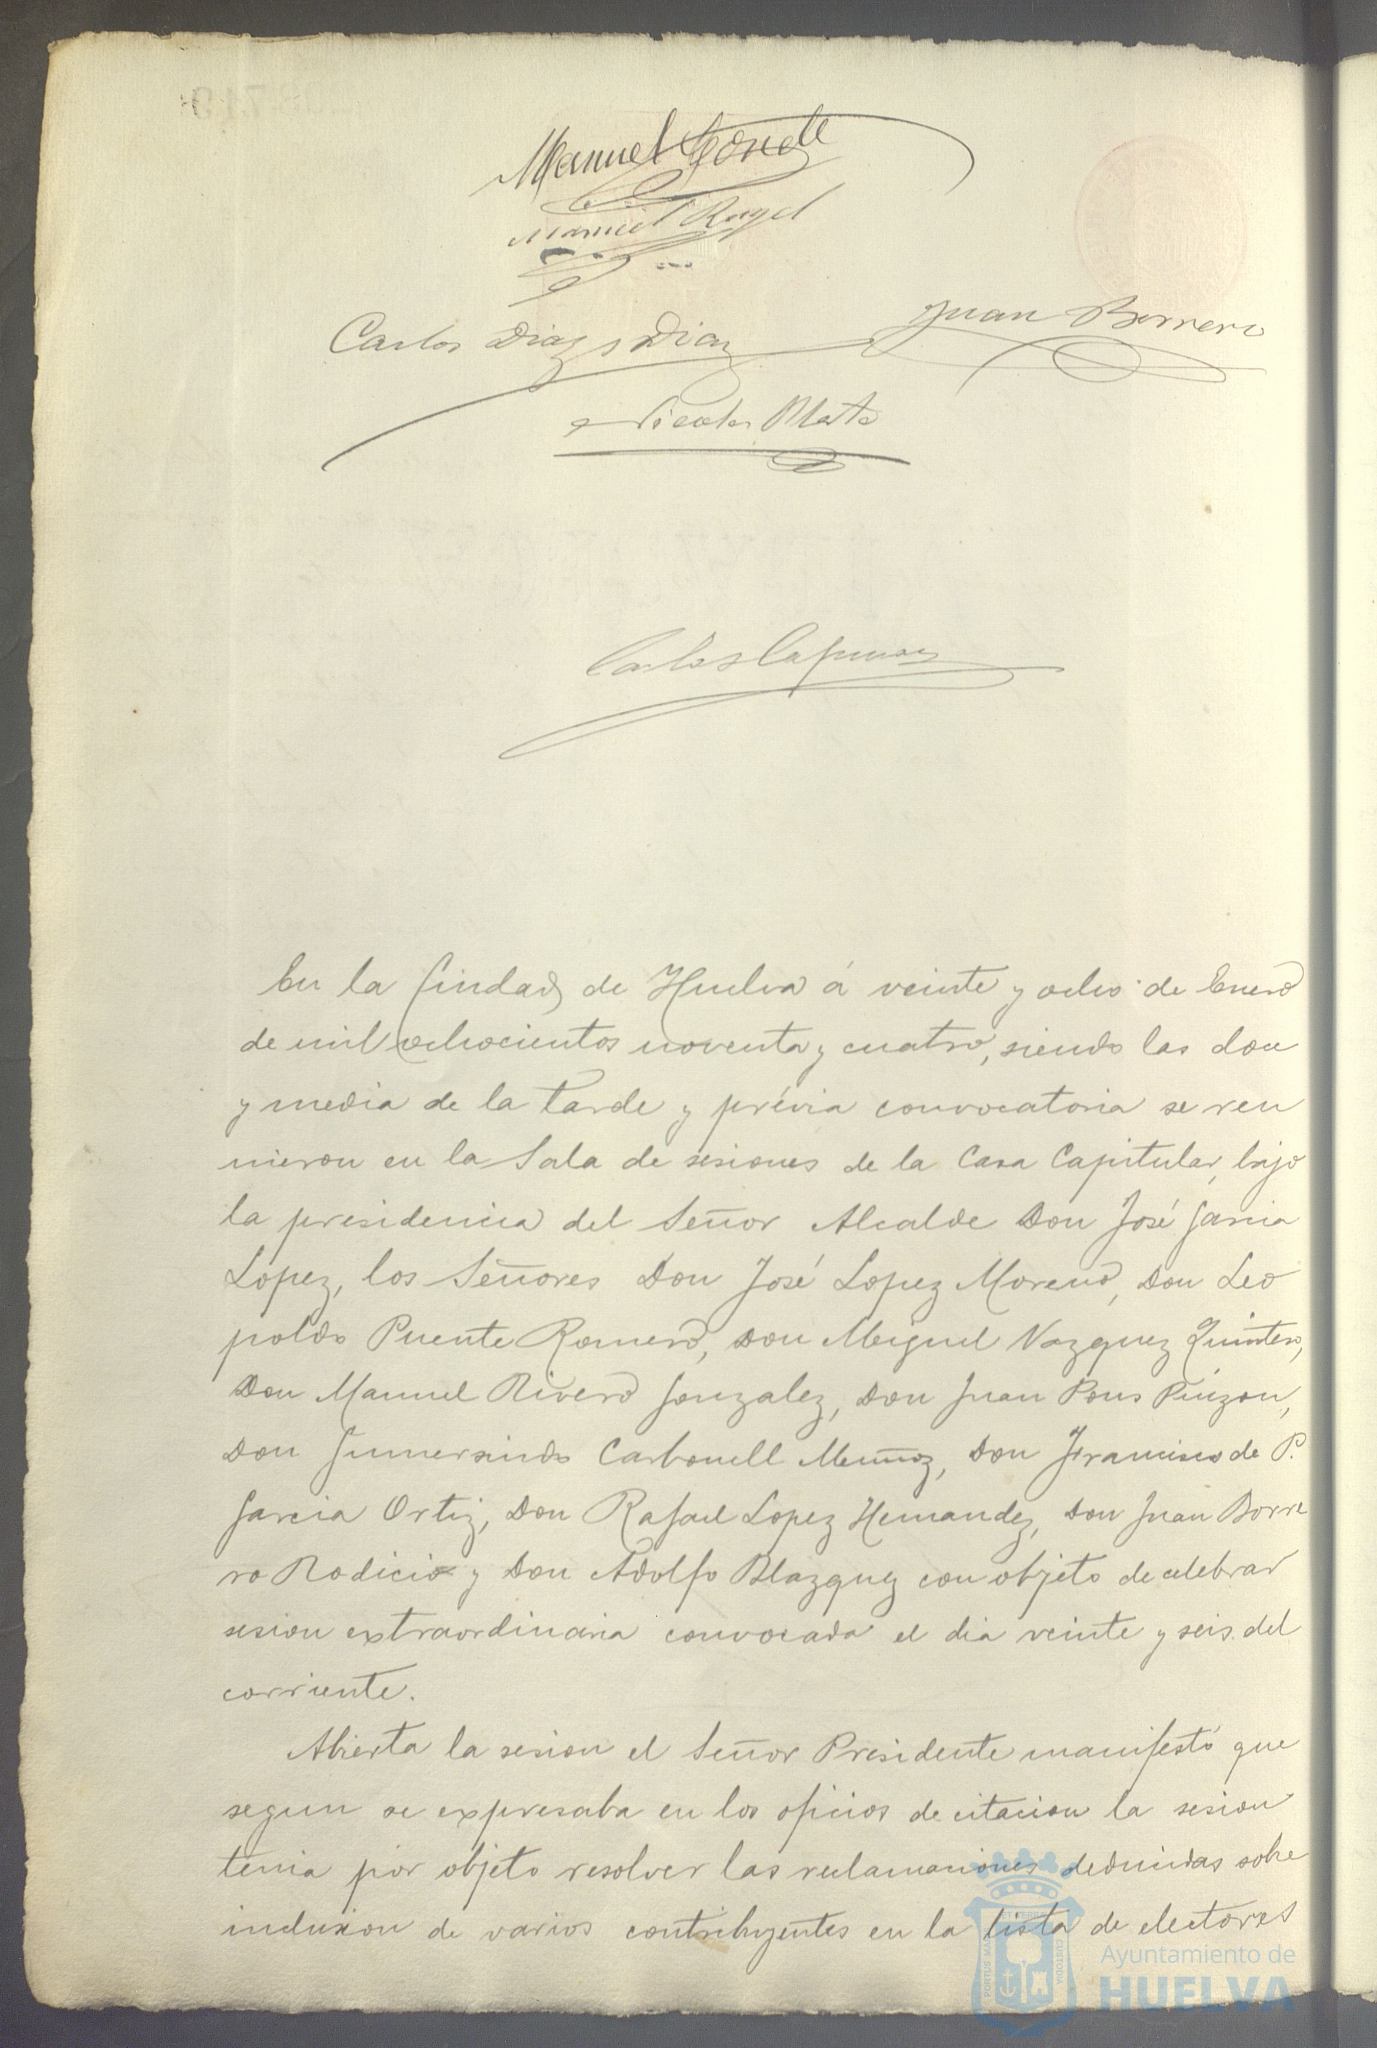 Manuel
Manuel Rogel
Carlos Diaz y Diaz
Juan Borrero
Nicolas Mata
Carlos
En la Ciudad de Huelva á veinte y ocho de Enero
de mil ochocientos noventa y cuatro, siendo las dos
y media de la tarde y prévia convocatoria se reu
nieron en la Sala de sesiones de la Casa Capitular, bajo
la presidencia del Señor Alcalde Don José Garcia
Lopez, los Señores Don José Lopez Moreno, Don Leo
poldo Puente Romero, Don Miguel Vazquez Quintero,
Don Manuel Rivero Gonzalez, Don Juan Pons Pinzon,
Don Gumersindo Carbonell Muñoz, Don Francisco de P.
Garcia Ortiz, Don Rafael Lopez Hernandez, Don Juan Borre
ro Rodicio y Don Adolfo Blazquez con objeto de celebrar
sesion extraordinaria convocada el dia veinte y seis del
corriente.
Abierta la sesion el Señor Presidente manifestó que
segun se expresaba en los oficios de citacion la sesion
tenia por objeto resolver las reclamaciones deducidas sobre
inclusion de varios contribuyentes en la lista de electores
Ayuntamiento de
HUELVA